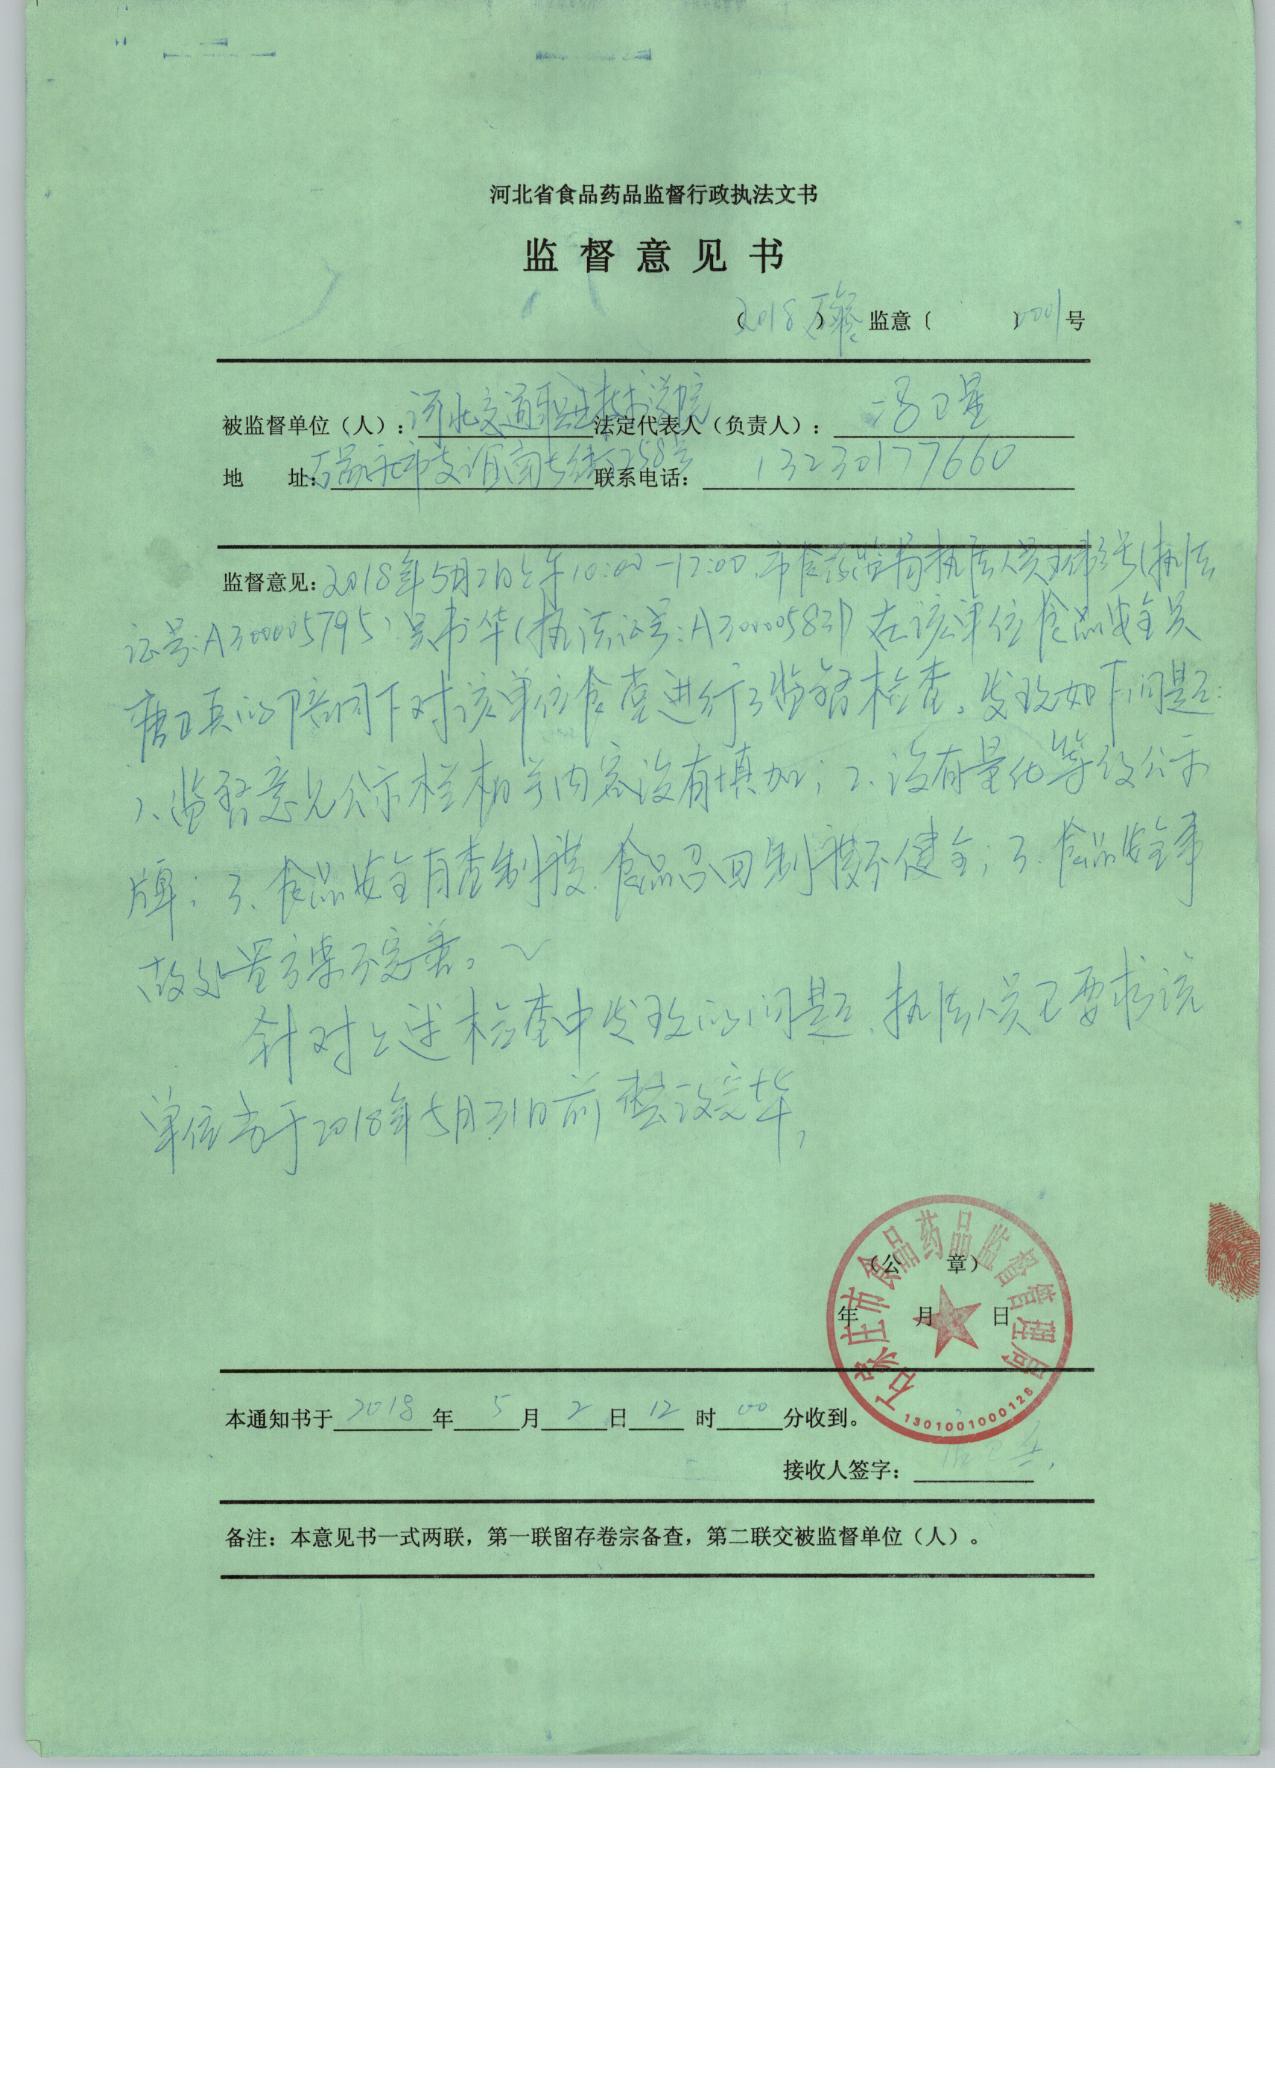 河北省食品药品监督行政执法文书
监督意见书
（2018 石餐）监意〔　　〕2001号
被监督单位（人）：河北交通职业技术学院 法定代表人（负责人）：冯卫星
地　　址：石家庄市友谊南大街258号 联系电话：13230177660
监督意见：2018年5月2日上午10:00-12:00，市食药监局执法人员（执法
证号：A300005795）、吴书华（执法证号：A30000583）在该单位食品安全员
唐卫真的陪同下对该单位食堂进行了监督检查。发现如下问题：
1、监督意见公示栏相关内容没有填加；2、没有量化等级公示
牌；3、食品安全自查制度、食品召回制度不健全；3、食品安全事
故处置方案不完善。
针对上述检查中发现的问题，执法人员已要求该
单位于2018年5月31日前整改完毕。
（公　　章）
年　　月　　日
石家庄市食品药品监督管理局
1301001000126
本通知书于2018年5月2日12时00分收到。
接收人签字：
备注：本意见书一式两联，第一联留存卷宗备查，第二联交被监督单位（人）。